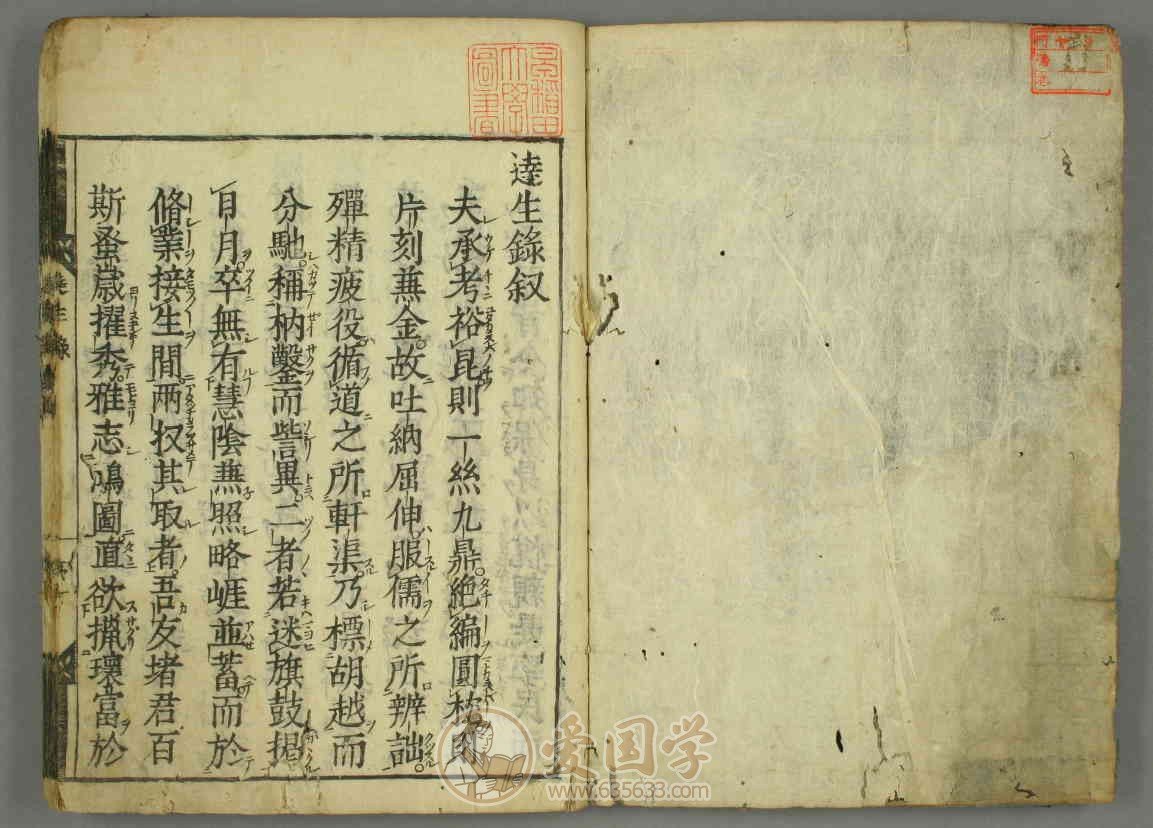 達生錄叙
夫承考裕昆則一絲九鼎絶編圓枕則
片刻兼金故吐納屈伸服儒之所辨詘
殫精疲役循道之所軒渠乃標胡越而
分馳稱枘鑿而訾異二者若迷旗鼓揭
日月卒無有慧陰兼照略崕並蓄而於
脩業接生間兩捄其取者吾友堵君百
斯蚤歳擢秀雅志鴻圖直欲擸瓌富於
達生錄
早稻田大學圖書
爱国学
www.635633.com